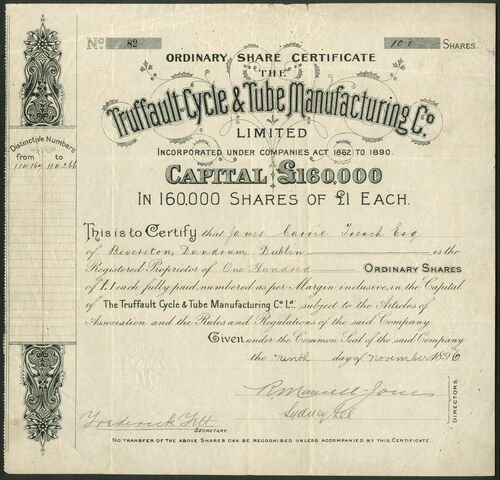 No. 82 100 SHARES.
ORDINARY SHARE CERTIFICATE
THE
Truffault-Cycle & Tube Manufacturing Co.
LIMITED
INCORPORATED UNDER COMPANIES ACT 1862 TO 1890.
CAPITAL £160,000
IN 160,000 SHARES OF £1 EACH.
Distinctive Numbers
from to
This is to Certify that James Currie French Esq
of Beverston, Dundrum Dublin is the
Registered Proprietor of One Hundred ORDINARY SHARES
of £1 each fully paid, numbered as per Margin inclusive, in the Capital
of The Truffault Cycle & Tube Manufacturing Co Ld. subject to the Articles of
Association and the Rules and Regulations of the said Company.
Given under the Common Seal of the said Company
the ninth day of November 1896
Jones
Sydney Lee
DIRECTORS.
Frederick
SECRETARY
NO TRANSFER OF THE ABOVE SHARES CAN BE RECOGNISED UNLESS ACCOMPANIED BY THIS CERTIFICATE.